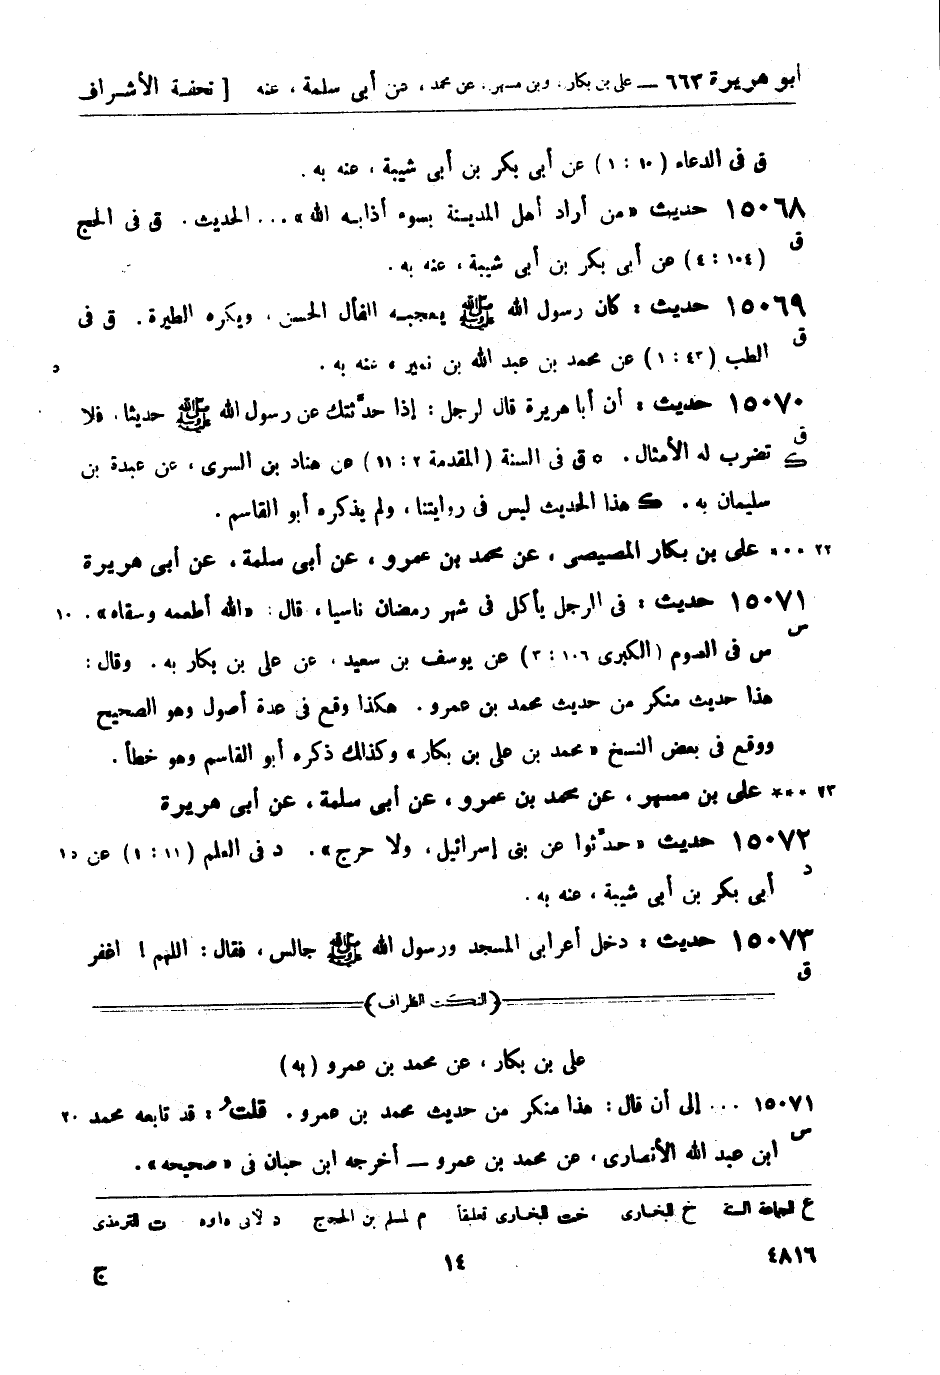 أبو هريرة ٦٦٣ — على بن بكار، وبن مسهر، عن محمد، عن أبى سلمة، عنه [ تحفة الأشراف
ق فى الدعاء (١٠ : ١) عن أبى بكر بن أبى شيبة، عنه به.
١٥٠٦٨ حديث «من أراد أهل المدينة بسوء أذابه الله» ... الحديث. ق فى الحج
ق
(١٠٤ : ٤) عن أبى بكر بن أبى شيبة، عنه به.
١٥٠٦٩ حديث: كان رسول الله ﷺ يعجبه الفأل الحسن، ويكره الطيرة. ق فى
ق
الطب (٤٣ : ١) عن محمد بن عبد الله بن نمير، عنه به. ٥
١٥٠٧٠ حديث: أن أبا هريرة قال لرجل: إذا حدَّثتك عن رسول الله ﷺ حديثا، فلا
ق ك
تضرب له الأمثال. ق فى السنة (المقدمة ٢ : ١١) عن هناد بن السرى، عن عبدة بن
سليمان به. ك هذا الحديث ليس فى روايتنا، ولم يذكره أبو القاسم.
٢٢ ••• على بن بكار المصيصى، عن محمد بن عمرو، عن أبى سلمة، عن أبى هريرة
١٥٠٧١ حديث: فى الرجل يأكل فى شهر رمضان ناسيا، قال: «الله أطعمه وسقاه». ١٠
س
س فى الصوم (الكبرى ١٠٦ : ٣) عن يوسف بن سعيد، عن على بن بكار به. وقال:
هذا حديث منكر من حديث محمد بن عمرو. هكذا وقع فى عدة أصول وهو الصحيح
ووقع فى بعض النسخ «محمد بن على بن بكار» وكذلك ذكره أبو القاسم وهو خطأ.
٢٣ *** على بن مسهر، عن محمد بن عمرو، عن أبى سلمة، عن أبى هريرة
١٥٠٧٢ حديث «حدَّثوا عن بنى إسرائيل، ولا حرج». د فى العلم (١١ : ١) عن ١٥
د
أبى بكر بن أبى شيبة، عنه به.
١٥٠٧٣ حديث: دخل أعرابى المسجد ورسول الله ﷺ جالس، فقال: اللهم! اغفر
ق
(النكت الظراف)
على بن بكار، عن محمد بن عمرو (به)
١٥٠٧١ ... إلى أن قال: هذا منكر من حديث محمد بن عمرو. قلتُ: قد تابعه محمد ٢٠
س
ابن عبد الله الأنصارى، عن محمد بن عمرو — أخرجه ابن حبان فى «صحيحه».
ع الجماعة الستة خ البخارى خت البخارى تعليقاً م لمسلم بن الحجاج د لأبى داود ت الترمذى
٤٨١٦ ١٤ ج